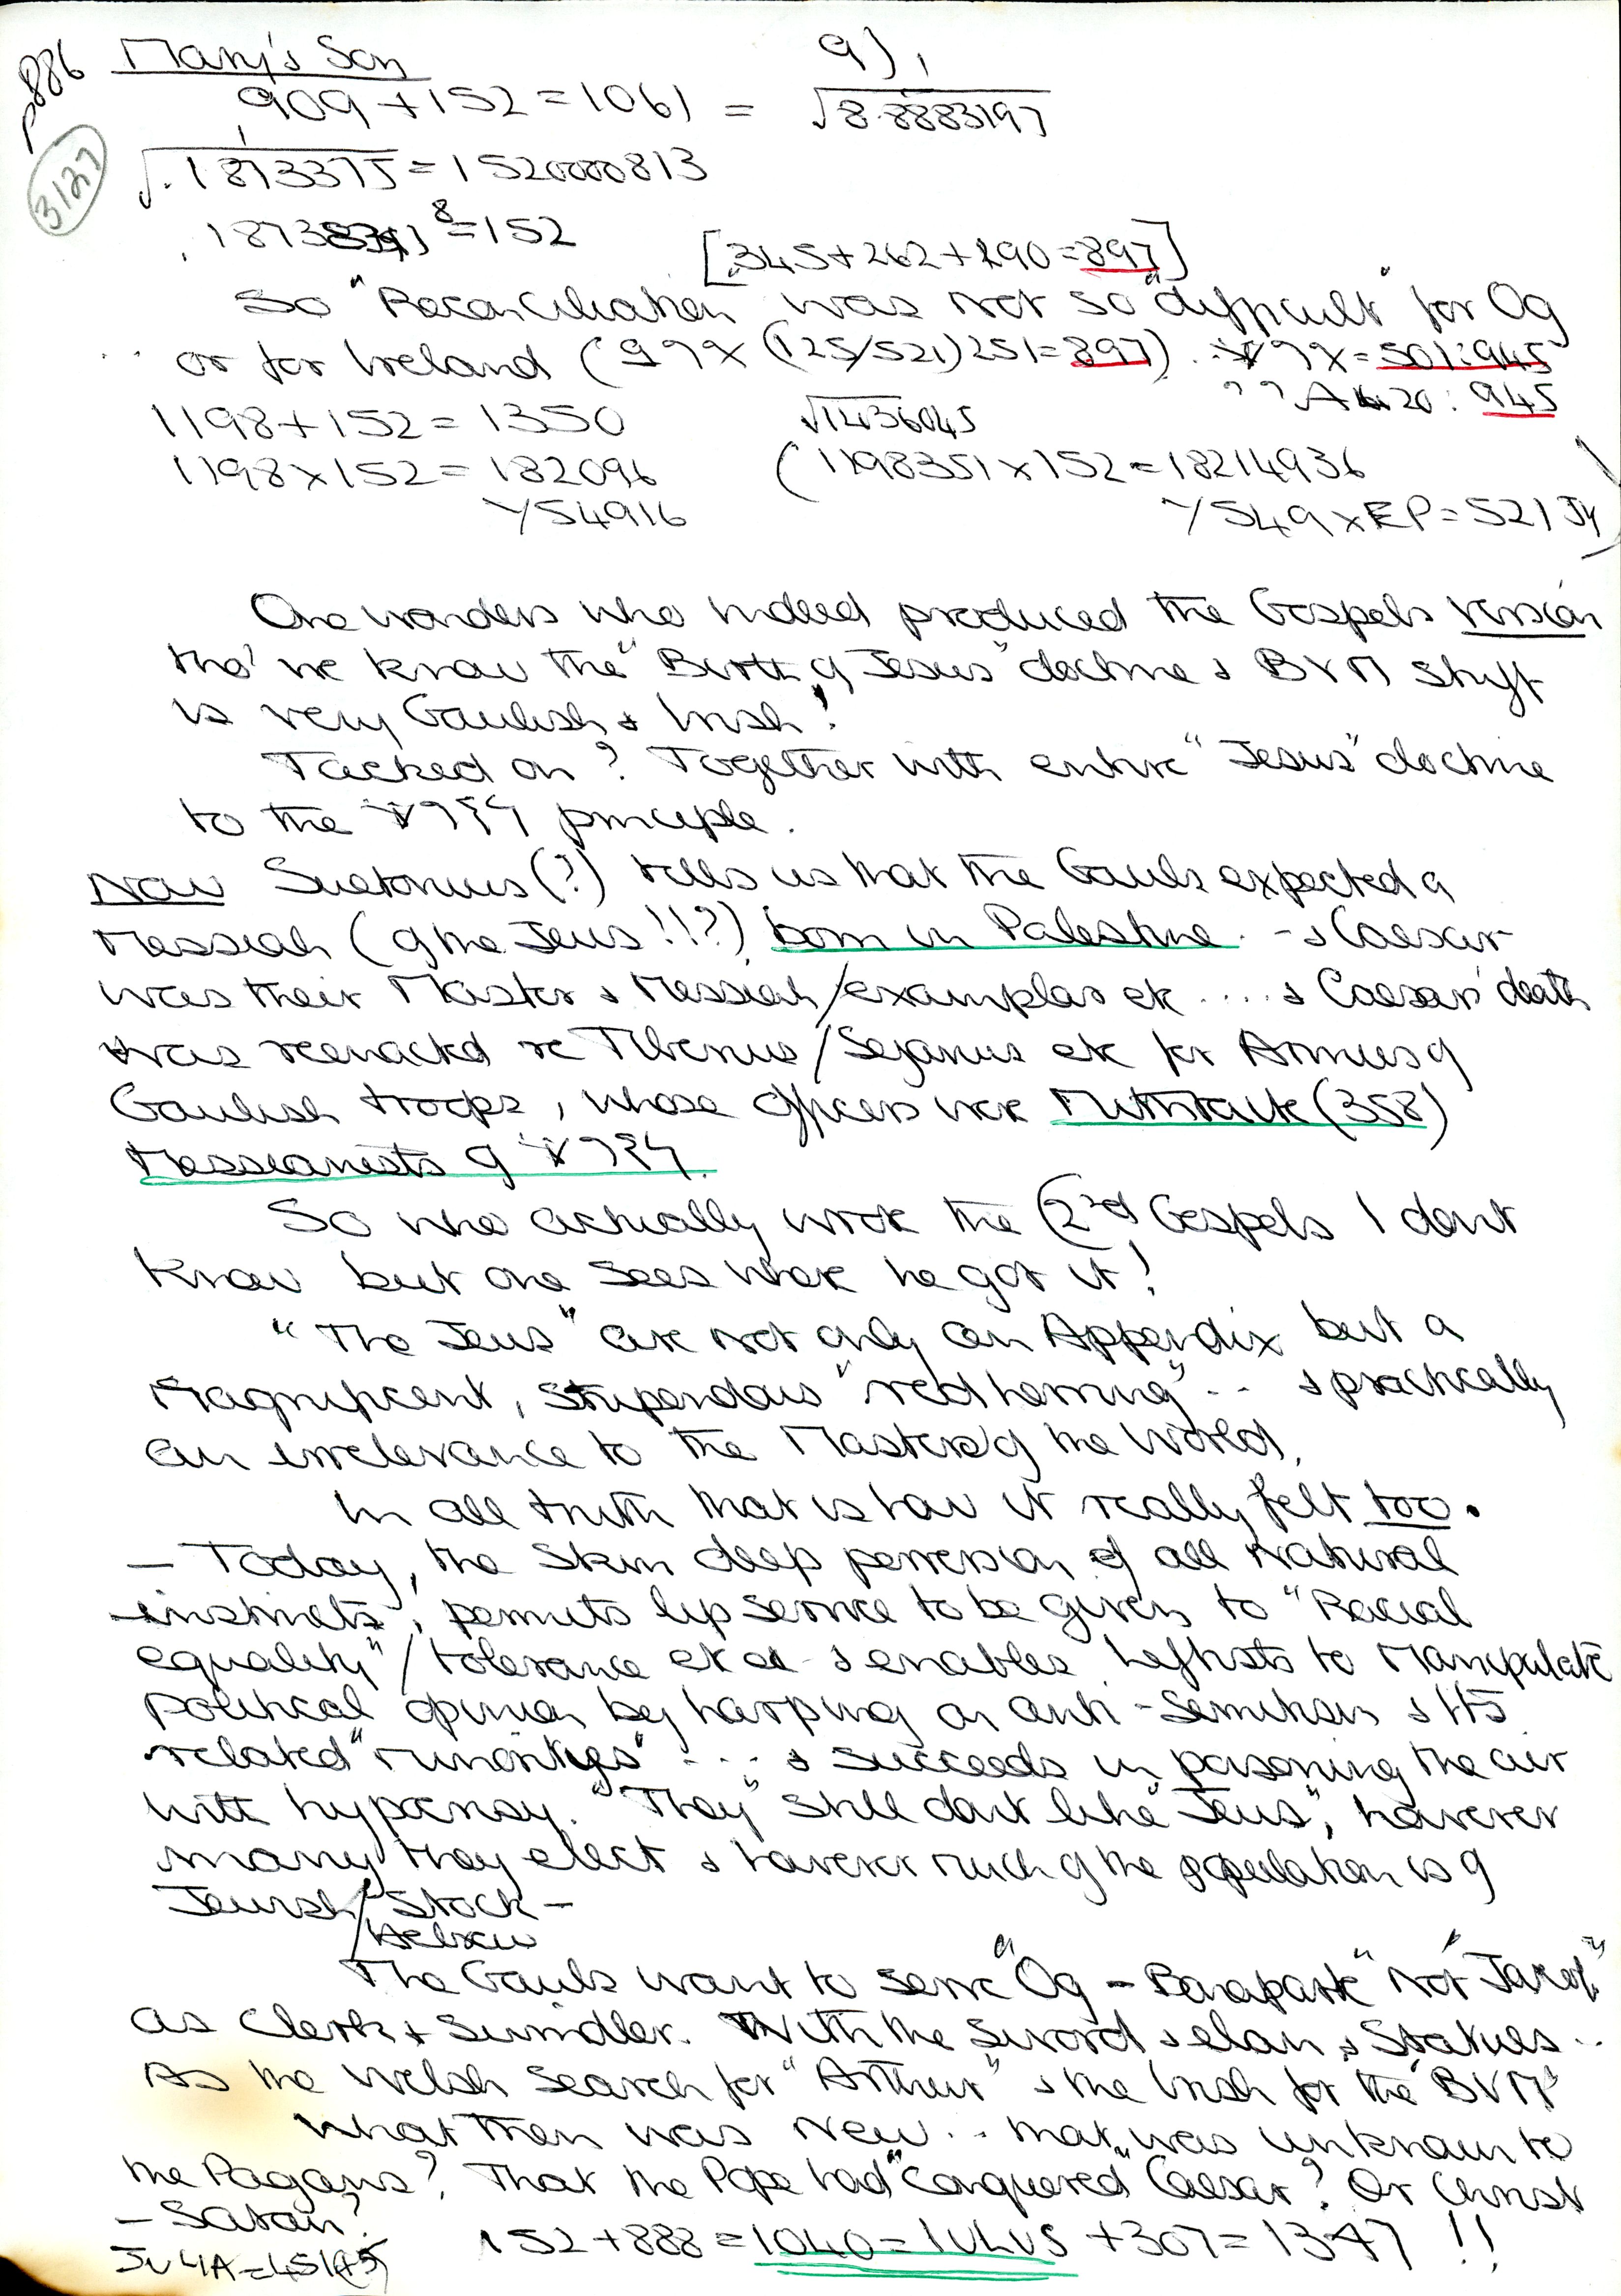 p886
3127
Mary's Son
9),
909 + 152 = 1061 = √8.8883197
√.1873375 = 1520000813
= 152
[345 + 262 + 290 = 897]
So "Reconciliation" was not so "difficult" for Og
or for Ireland ( (125/521) 251 = 897). = 501:945
20: 945
1198 + 152 = 1350 √1436045
1198 x 152 = 182096 (1198351 x 152 = 18214936
Y54916 Y549 x EP = 521 Jy)
One wonders who indeed produced the Gospels version
tho' we know the "Birth of Jesus" doctrine & BVM stuff
is very Gaulish & Irish!
Tacked on? Together with entire "Jesus" doctrine
to the principle.
Now Suetonius (?) tells us that the Gauls expected a
Messiah (of the Jews!!?) born in Palestine. - & Caesar
was their Master & Messiah/exemplar etc .... & Caesars' death
was reenacted re Tiberius/Sejanus etc for Armies of
Gaulish troops, whose officers were Mithraic (358)
Messianists of
So who actually wrote the (2nd) Gospels I dont
know but one sees where he got it!
"The Jews" are not only an Appendix but a
Magnificent, stupendous "red herring" .. & practically
an irrelevance to the Masters of the World.
In all truth that is how it really felt too.
- Today, the skin deep perversion of all natural
instincts, permits lip service to be given to "Racial
equality"/tolerance etc & enables Leftists to manipulate
political opinion by harping on anti-semitism & its
related "minorities" ... & succeeds in poisoning the air
with hypocrisy. "They" still dont like "Jews", however
many they elect & however much of the population is of
Jewish/Stock -
/Hebrew
The Gauls want to serve "Og - Bonaparte" not
as clerk & swindler. With the sword & elan & Statues..
As the Welsh search for "Arthur" & the Irish for the "BVM"
What then was New .. that was unknown to
the Pagans? That the Pope had "Conquered" Caesar? Or Christ
- Satan?
152 + 888 = 1040 = IULUS + 307 = 1347 !!